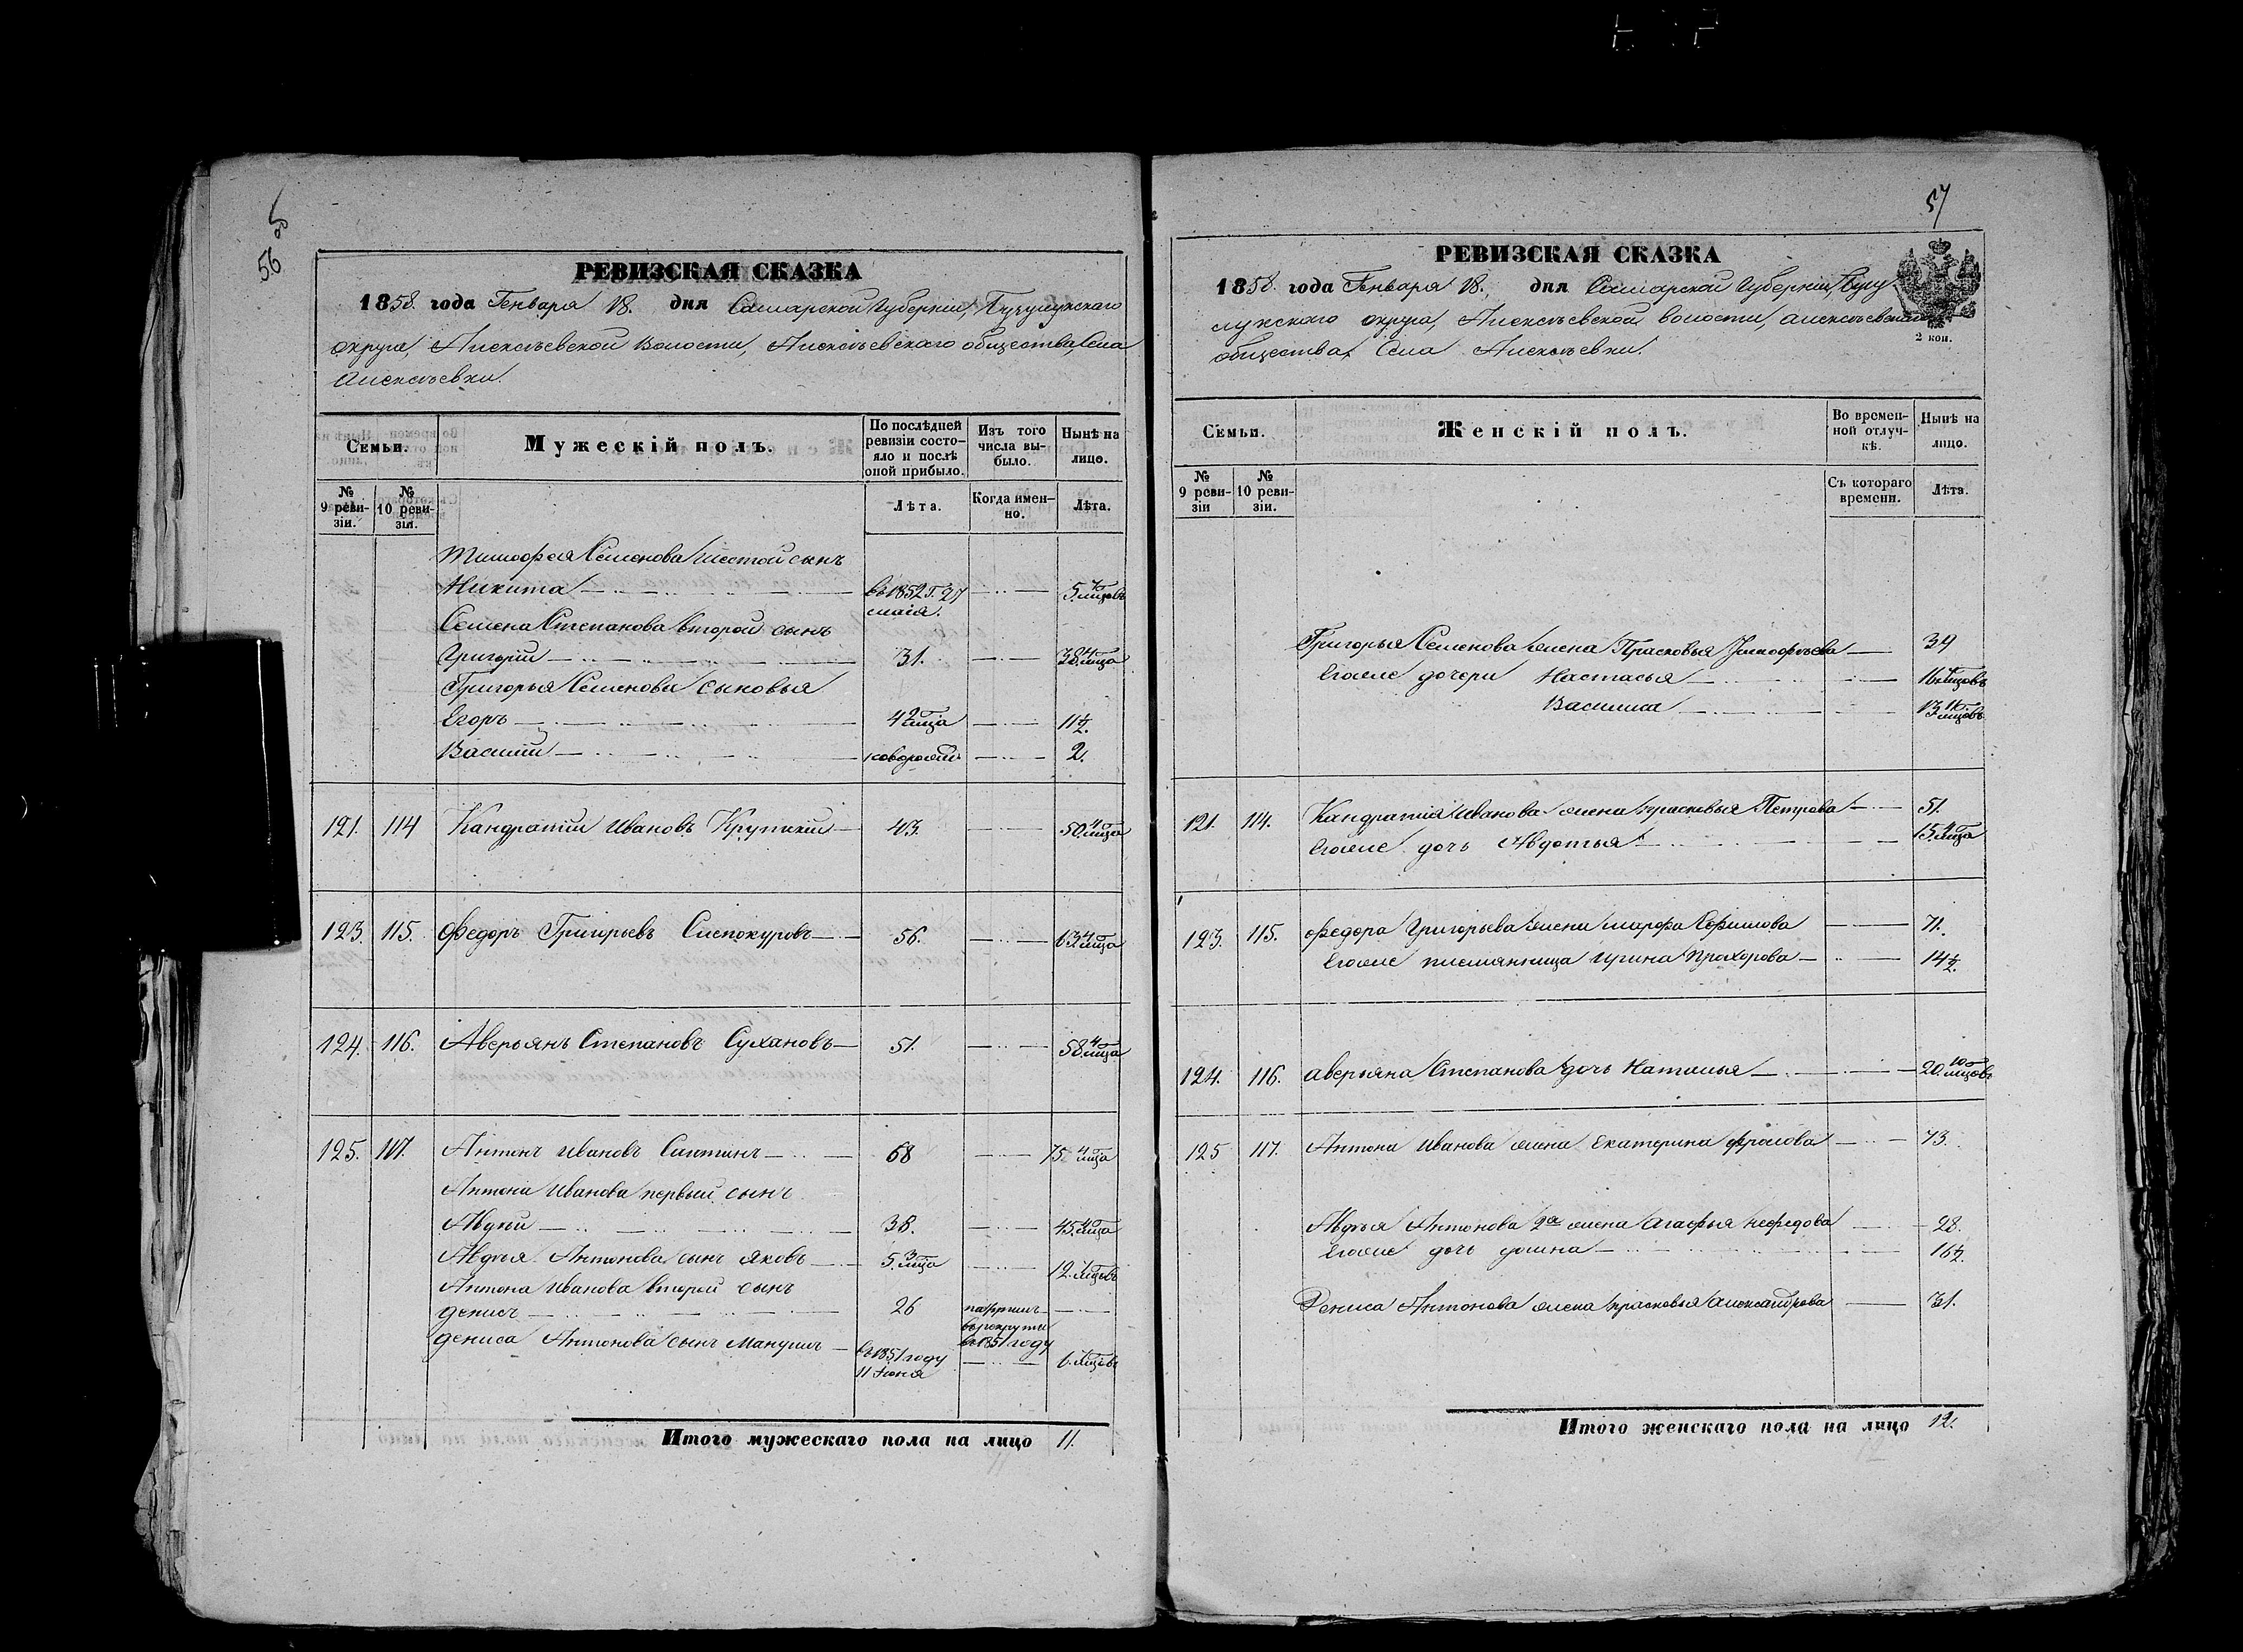 56
РЕВИЗСКАЯ СКАЗКА
1858 года Генваря 18. дня Самарской Губерніи, Бугурусланскаго
округа, Алексѣевской Волости, Алексѣевскаго общества, Села
Алексѣевки.
Семьи.
Мужескій полъ.
По послѣдней ревизіи состояло и послѣ оной прибыло.
Изъ того числа выбыло.
Нынѣ на лицо.
№ 9 ревизіи.
№ 10 ревизіи.
Лѣта.
Когда именно.
Лѣта.
Тимофея Семенова шестой сынъ
Никита въ 1852 г. 27 маія.
Семена Степанова второй сынъ
Григорій 31. 38
Григорья Семенова сыновья
Егоръ 4 11½.
Василій новорожден 2.
121. 114 Кандратий Ивановъ Крупкий 43. 50
123. 115. Федоръ Григорьевъ Слепокуровъ 56. 63
124. 116. Аверьянъ Степановъ Сухановъ 51. 58
125. 117. Антонъ Ивановъ Силтинъ 68 75
Антона Иванова первый сынъ
Авдей 38. 45
Авдѣя Антонова сынъ Яковъ 5. 12.
Антона Иванова второй сынъ
Денисъ 26
въ рекруты
въ 1851 году
Дениса Антонова сынъ
въ 1851 году
11 Іюня
6.
Итого мужескаго пола на лицо 11.
57
РЕВИЗСКАЯ СКАЗКА
1858 года Генваря 18. дня Самарской Губерніи,
округа, Алексѣевской волости, Алексѣевскаго
общества, Села Алексѣевки.
2 коп.
Семьи.
Женскій полъ.
Во временной отлучкѣ.
Нынѣ на лицо.
№ 9 ревизіи
№ 10 ревизіи.
Съ котораго времени.
Лѣта.
Григорья Семенова жена Прасковья 39
Егоже дочери Настасья 16
Василиса 13
121. 114. Кандратия Иванова жена Прасковья Петрова 51.
Егоже дочь Авдотья 15
123. 115. Федора Григорьева жена Марфа Ефимова 71.
Егоже племянница Ирина Прохорова 14½.
124. 116. Аверьяна Степанова дочь Наталья 20.
125 117. Антона Иванова жена Екатерина Фролова 73.
Авдѣя Антонова 2я жена Агафья Нефедова 28.
Егоже дочь 16½.
Дениса Антонова жена Прасковья Александрова 31.
Итого женскаго пола на лицо 12.